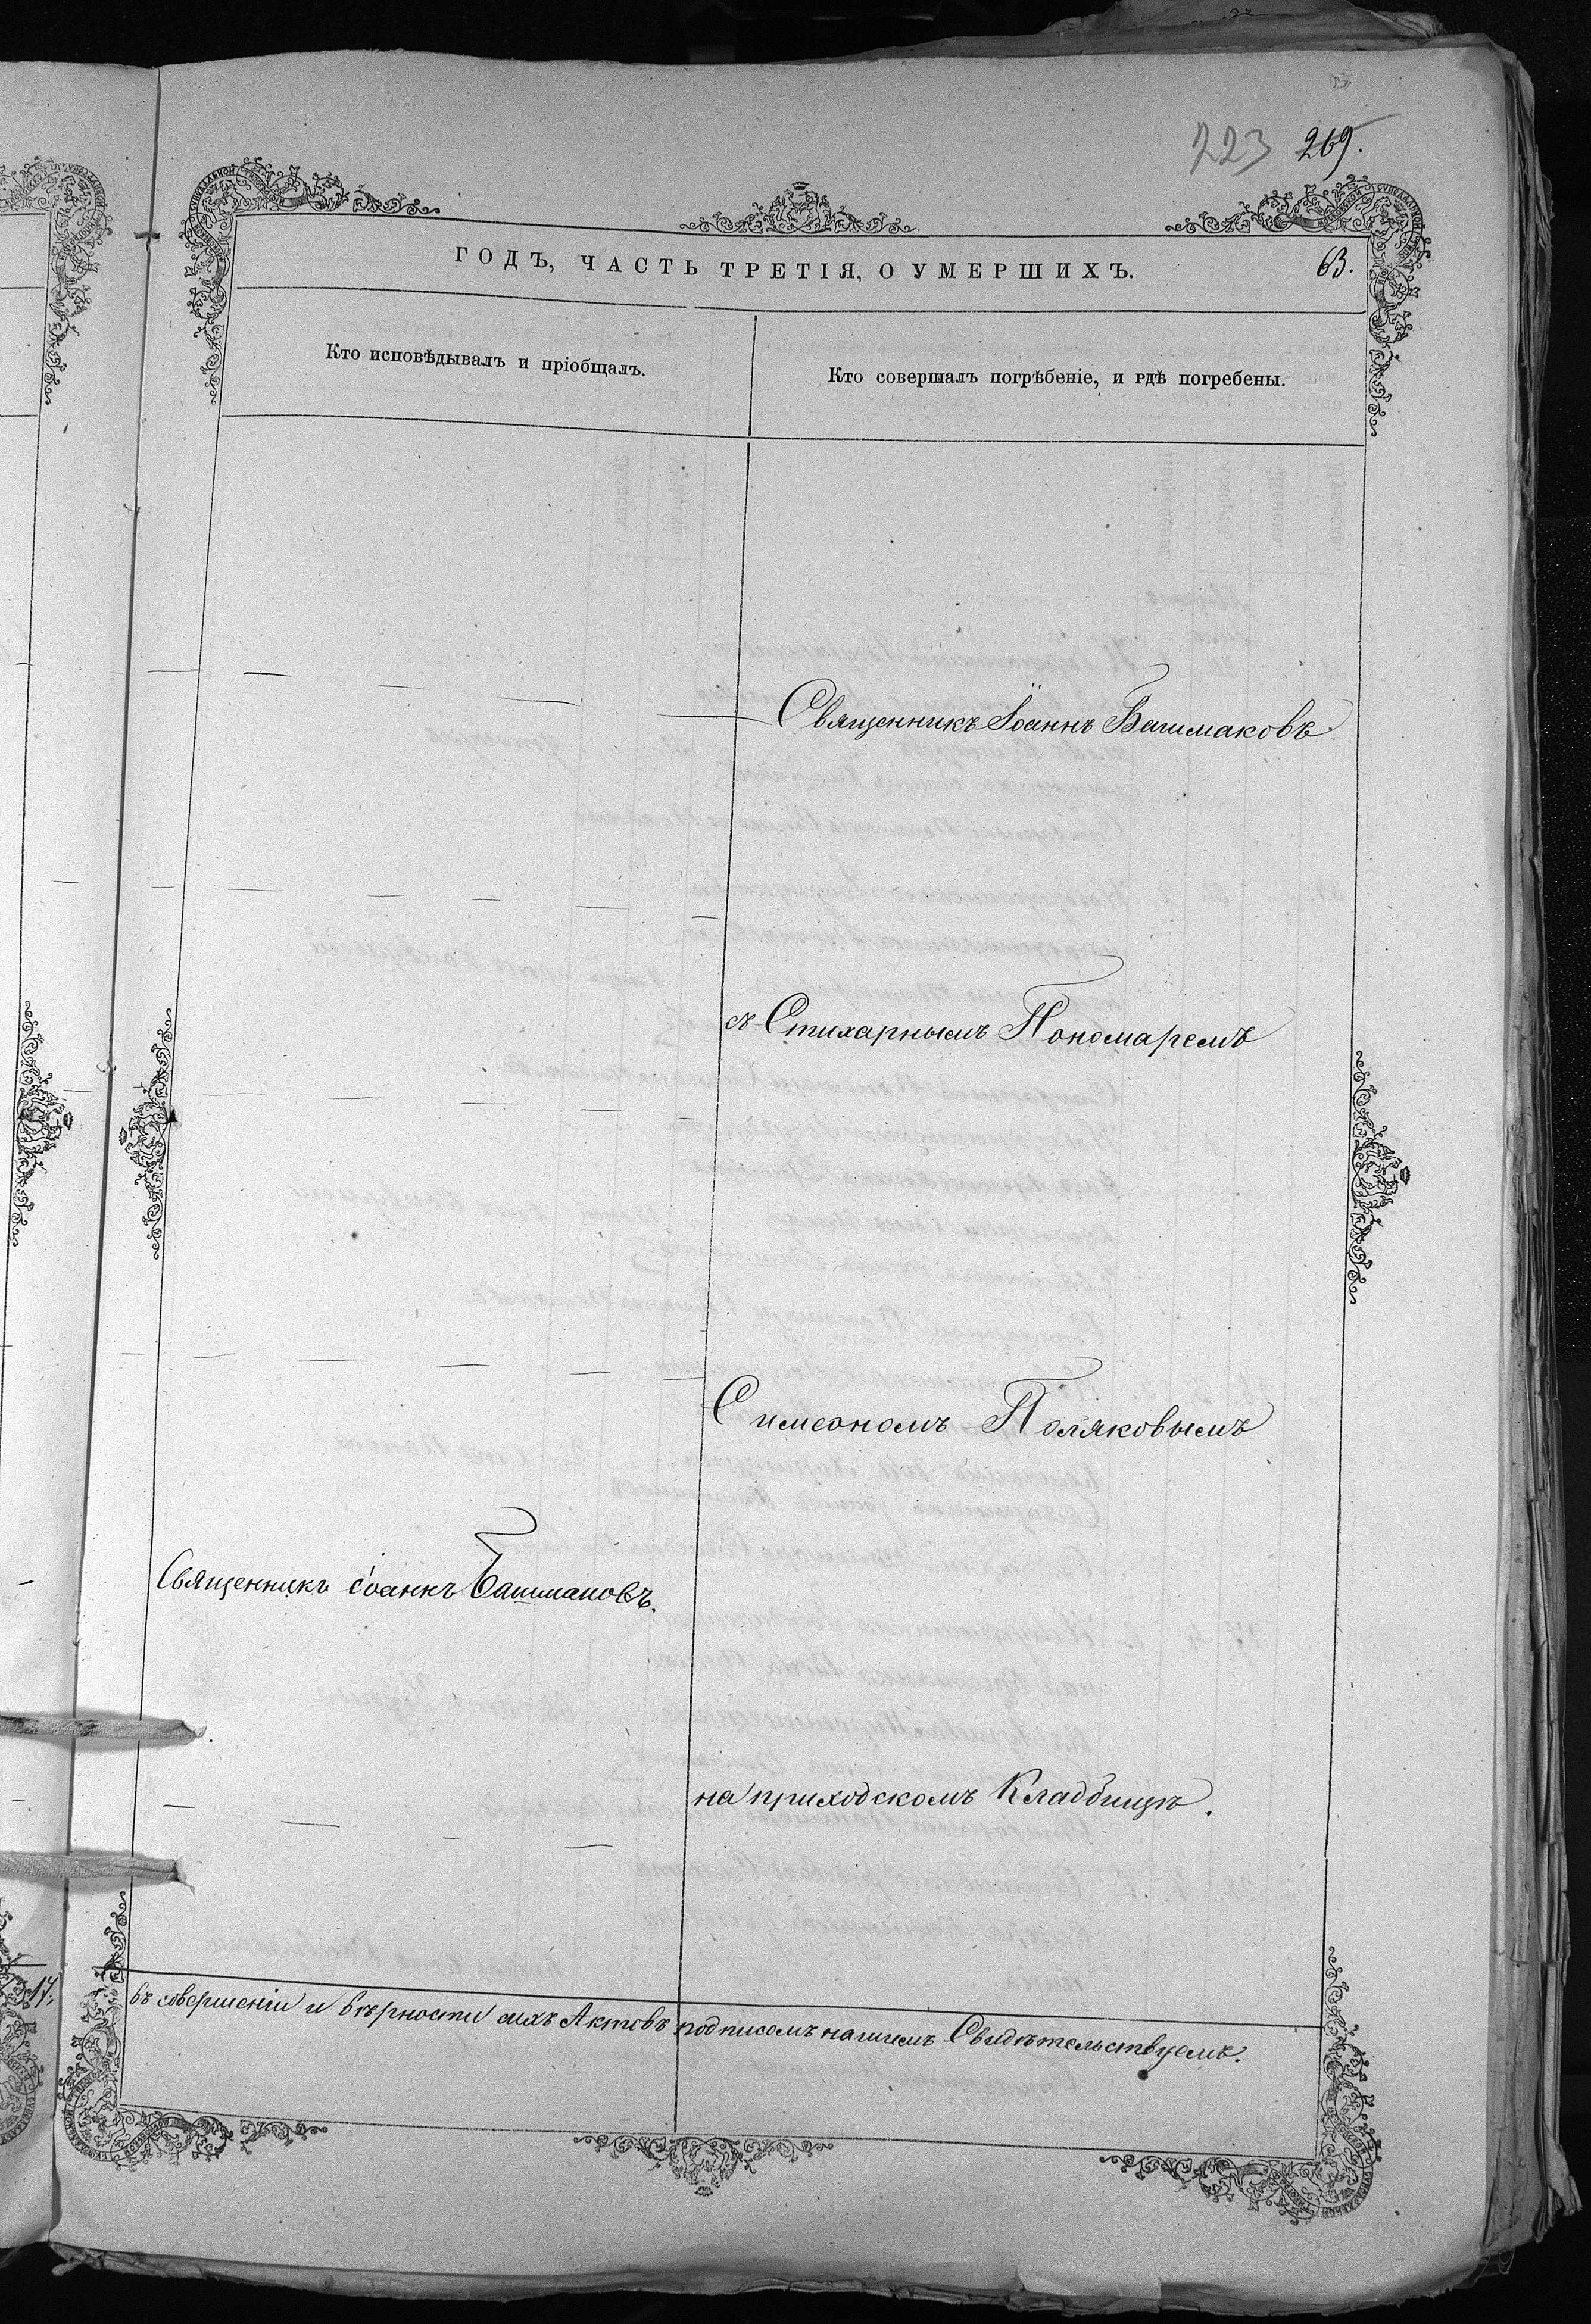 223 269.
ГОДЪ, ЧАСТЬ ТРЕТІЯ, О УМЕРШИХЪ.
63.
Кто исповѣдывалъ и пріобщалъ.
Кто совершалъ погрѣбеніе, и гдѣ погребены.
Священникъ Іоаннъ Башмаковъ
съ Стихарнымъ Пономаремъ
Симеономъ Поляковымъ
Священникъ Іоаннъ Башмаковъ.
на приходскомъ Кладбищѣ.
17.
въ совершеніи и вѣрности сихъ Актовъ подписомъ нашимъ Свидѣтельствуемъ.